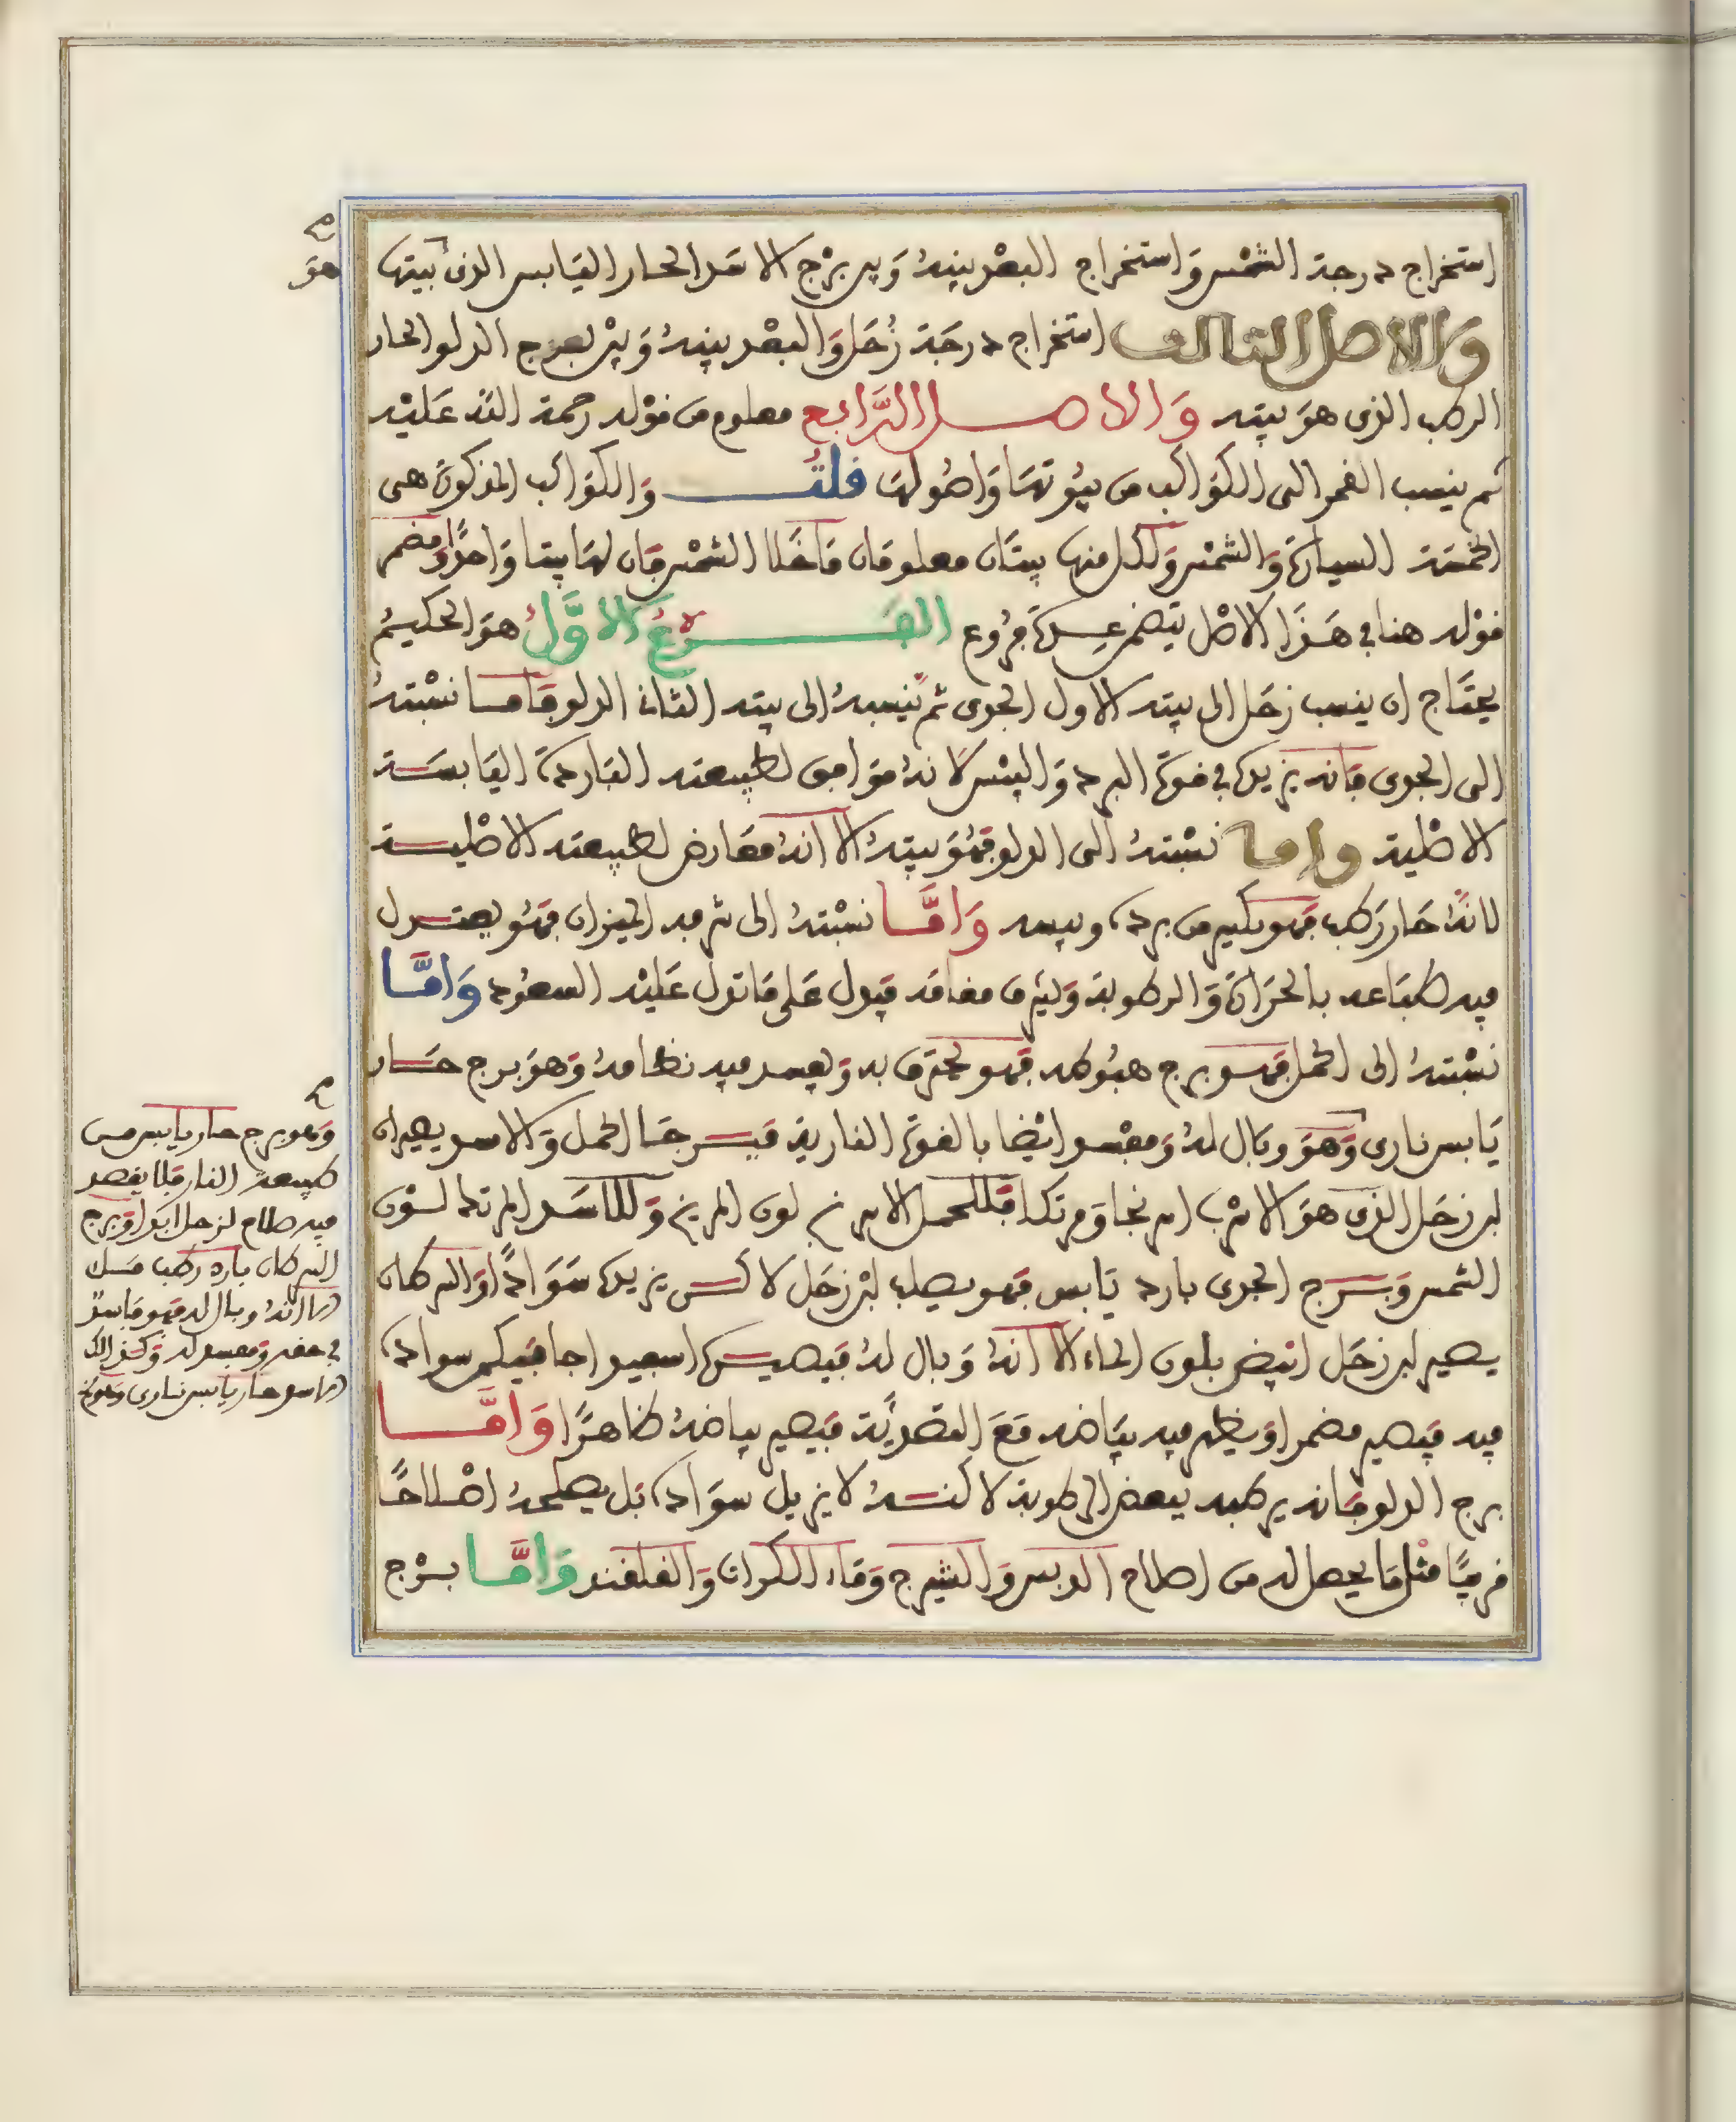 استخراج درجة الشمس واستخراج البعد بينه وبين برج الاسد الحار اليابس الذي بيتها
والاصل الثالث استخراج درجة زحل والبعد بينه وبين برج الدلو الحار
الرطب الذي هو بيته والاصل الرابع معلوم من قوله رحمة الله عليه
ثم ينسب القمر الى الكواكب من بيوتها واصولها قلت والكواكب المذكورة هي
الخمسة السيارة والشمس ولكل منها بيتان معلومان ما خلا الشمس فان لها بيتا واحدا ومضمر
قوله هنا في هذا الاصل يتضمن عدة فروع الفرع الاول هو الحكيم
يحتاج ان ينسب زحل الى بيته الاول الجدي ثم ينسبه الى بيته الثاني الدلو فاما نسبته
الى الجدي فانه يزيده في قوة البرد واليبس لانه موافق لطبيعته الباردة اليابسة
الاصلية واما نسبته الى الدلو فهو بيته الا انه معارض لطبيعته الاصلية
لانه حار رطب فهو يكسر من برده ويبسه واما نسبته الى شرفه الميزان فهو يعتدل
فيه طباعه بالحرارة والرطوبة ويشرف مقامه فيدل على ما تدل عليه السعود واما
نسبته الى الحمل فهو برج هبوطه فهو يحترق به ويفسد فيه نظامه وهو برج حار
يابس ناري وهو وبال له ومفسد ايضا بالقوة النارية فبرجا الحمل والاسد يصيران
لبن زحل الذي هو الاسرب اسرنجا ومرتكا فللحمل الاسرنج لون المريخ وللاسد المرتك لون
الشمس وبرج الجدي بارد يابس فهو يصلب لبن زحل لاكن يزيده سوادا والسرطان
يصير لبن زحل ابيض بلون الماء الا انه وبال له فيصيره اسفيداجا فيكمن سواده
فيه فيصير مضمرا ويظهر فيه بياضه مع التصدية فيصير بياضه ظاهرا واما
برج الدلو فانه يرطبه ببعض الرطوبة لاكنه لا يزيل سواده بل يصلحه اصلاحا
قريبا مثل ما يحصل له من اصلاح الدبس والشيرج وماء الكراث والقلقند واما برج
هو
وهو برج حار يابس من
طبيعة النار فلا يقصد
فيه صلاح لزحل ابدا وبرج
السرطان بارد رطب
الا انه وبال له فهو فاسد
في حقه ومفسد له وكذالك
الاسد حار يابس ناري وهو